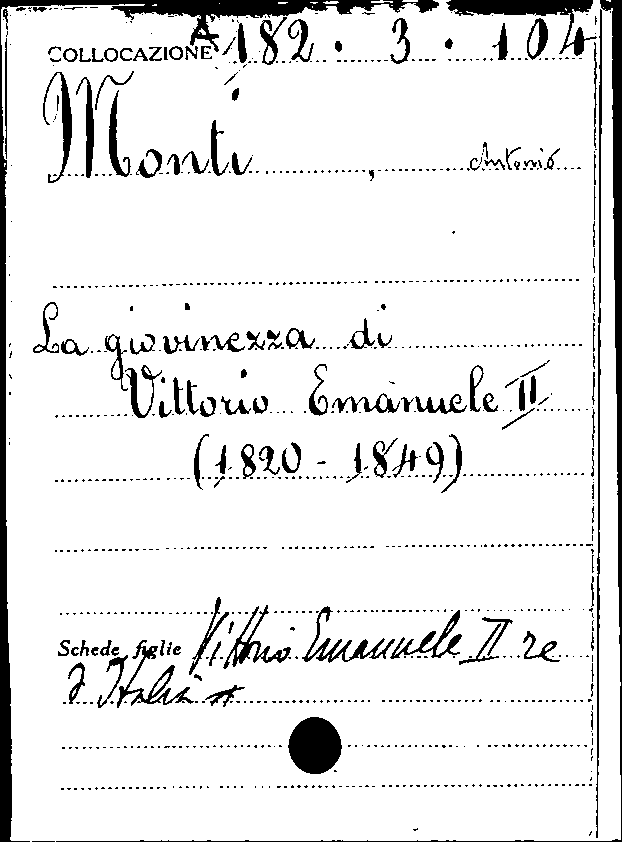 COLLOCAZIONE A 182 . 3 . 104
Monti , Antonio
La giovinezza di
Vittorio Emanuele II
(1820 - 1849)
Schede figlie Vittorio Emanuele II re
d'Italia *